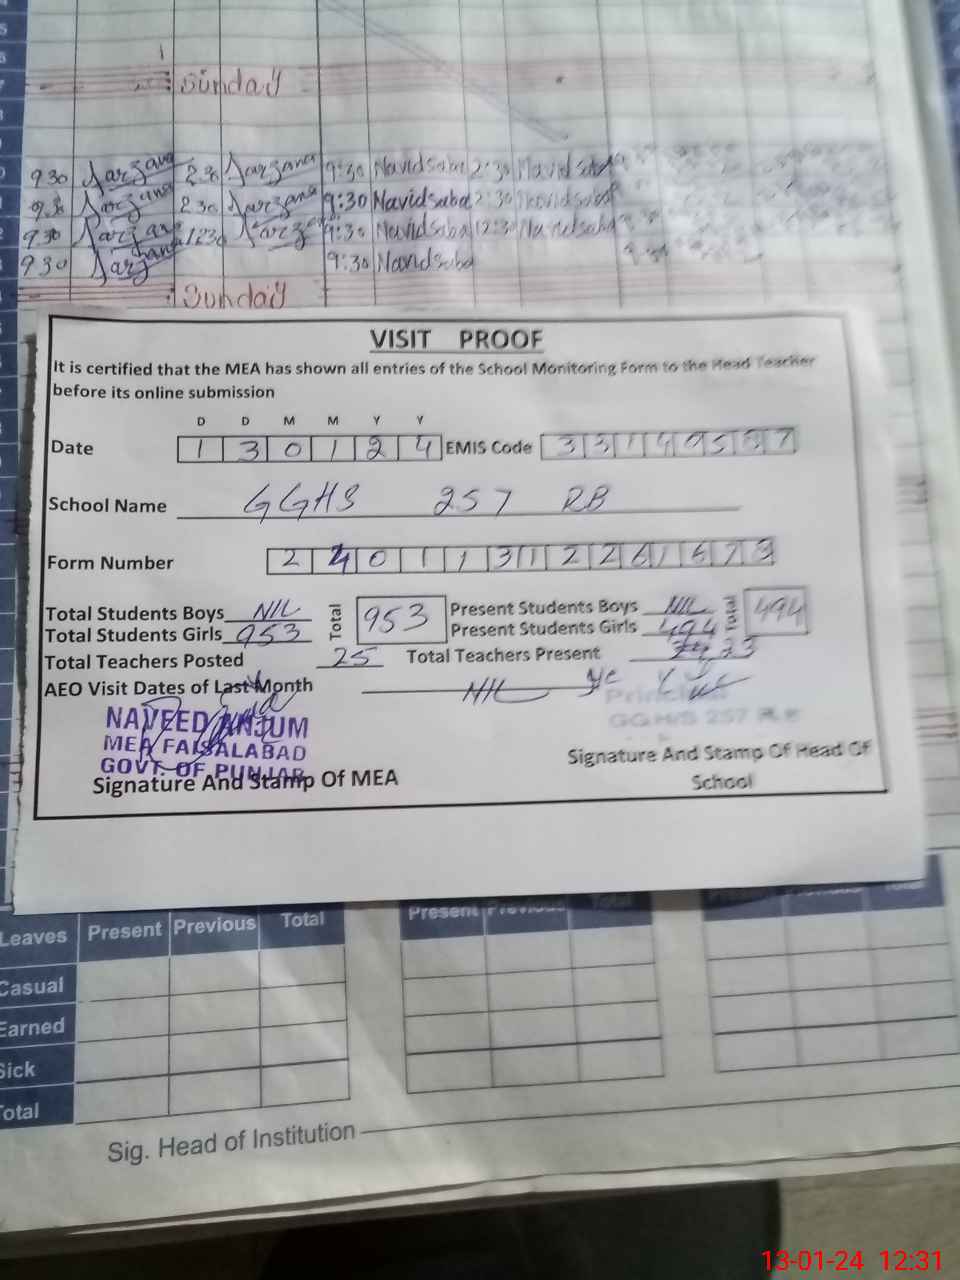 Sunday
9 30 Farzana 2 30 Farzana 9:30 Navidsaba 2:30 Navidsaba
9 30 Farzana 2 30 Farzana 9:30 Navidsaba 2:30 Navidsaba
9 30 Farzana 12 30 9:30 Navidsaba 12:30 Navidsaba
9 30 Farzana 9:30 Navidsaba
Sunday
VISIT PROOF
It is certified that the MEA has shown all entries of the School Monitoring Form to the Head Teacher
before its online submission
D D M M Y Y
Date 1 3 0 1 2 4 EMIS Code
School Name GGHS 257 RB
Form Number
Total Students Boys NIL Total 953 Present Students Boys NIL Total 494
Total Students Girls 953 Present Students Girls 494
Total Teachers Posted 25 Total Teachers Present 23
AEO Visit Dates of Last Month NIL
Principal
NAVEED ANJUM GGHS 257 RB
MEA FAISALABAD
GOVT. OF PUNJAB
Signature And Stamp Of MEA Signature And Stamp Of Head Of
School
Leaves Present Previous Total Present Previous Total Present Previous Total
Casual
Earned
Sick
Total
Sig. Head of Institution
13-01-24 12:31